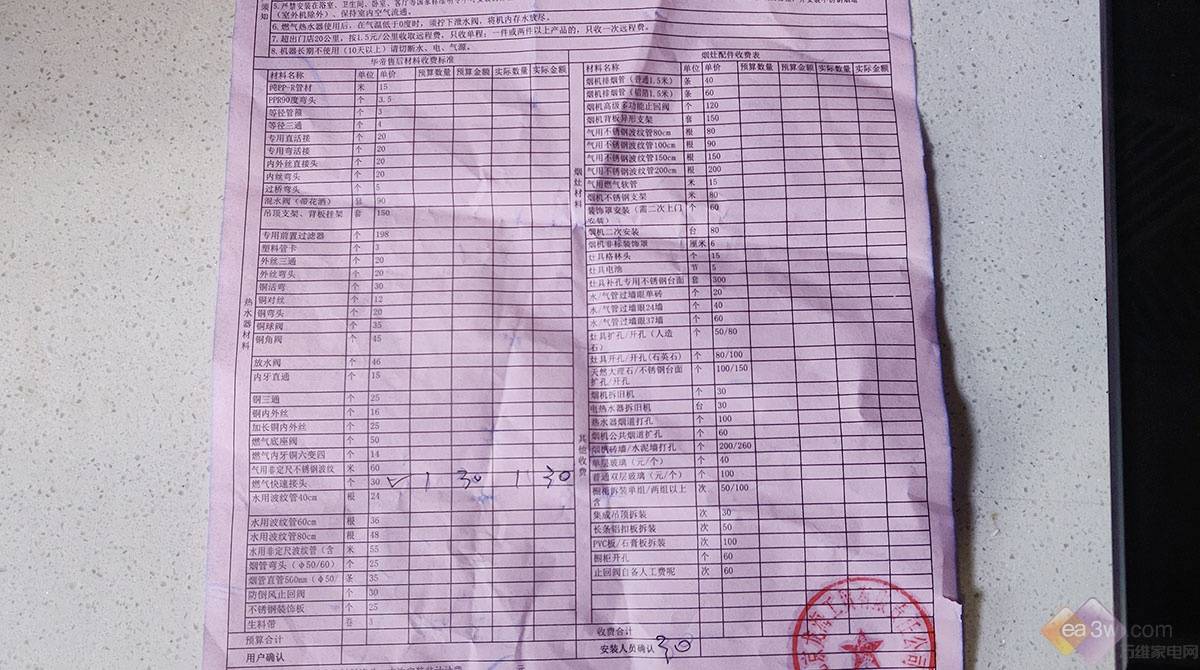 须知
5.严禁安装在浴室、卫生间、卧室、客厅等
(室外机除外)、保持室内空气流通。
6.燃气热水器使用后,在气温低于0度时,须拧下泄水阀,将机内存水放尽。
7.超出门店20公里,按1.5元/公里收取远程费,只收单程;一件或两件以上产品的,只收一次远程费。
8.机器长期不使用(10天以上)请切断水、电、气源。
华帝售后材料收费标准
材料名称 单位 单价 预算数量 预算金额 实际数量 实际金额
热水器材料
纯PP-R管材 米 15
PPR90度弯头 个 3.5
等径管箍 个 3
等径三通 个 4
专用直活接 个 20
专用弯活接 个 20
内外丝直接头 个 20
内丝弯头 个 20
过桥弯头 个 5
混水阀(带花洒) 套 90
吊顶支架、背板挂架 套 150
专用前置过滤器 个 198
塑料管卡 个 3
外丝三通 个 20
外丝弯头 个 20
铜活弯 个 30
铜对丝 个 12
铜弯头 个 20
铜球阀 个 35
铜角阀 个 45
放水阀 个 46
内牙直通 个 15
铜三通 个 25
铜内外丝 个 16
加长铜内外丝 个 25
燃气底座阀 个 50
燃气内牙铜六变四 个 14
气用非定尺不锈钢波纹 米 60
燃气快速接头 个 30 ✓ 1 30 1 30
水用波纹管40cm 根 24
水用波纹管60cm 根 36
水用波纹管80cm 根 48
水用非定尺波纹管(含 米 55
烟管弯头(Φ50/60) 个 25
烟管直管500mm(Φ50/ 条 35
防倒风止回阀 个 30
不锈钢装饰板 个 25
生料带 卷 3
预算合计
用户确认
烟灶配件收费表
材料名称 单位 单价 预算数量 预算金额 实际数量 实际金额
烟灶材料
烟机排烟管(普通1.5米) 条 40
烟机排烟管(铝箔1.5米) 条 60
烟机高级多功能止回阀 个 120
烟机背板异形支架 套 150
气用不锈钢波纹管80cm 根 80
气用不锈钢波纹管100cm 根 90
气用不锈钢波纹管150cm 根 150
气用不锈钢波纹管200cm 根 200
气用燃气软管 米 15
烟机不锈钢支架 米 80
装饰罩安装(需二次上门安装) 个 60
烟机二次安装 台 80
烟机非标装饰罩 厘米 6
灶具格林头 个 15
灶具电池 节 5
灶具补孔专用不锈钢台面 套 300
其他收费
水/气管过墙眼单砖 个 20
水/气管过墙眼24墙 个 40
水/气管过墙眼37墙 个 60
灶具扩孔/开孔(人造石) 个 50/80
灶具开孔/开孔(石英石) 个 80/100
天然大理石/不锈钢台面扩孔/开孔 个 100/150
烟机拆旧机 个 30
电热水器拆旧机 台 30
热水器烟道打孔 个 100
烟机公共烟道扩孔 个 60
烟机砖墙/水泥墙打孔 个 200/260
单层玻璃(元/个) 个 40
普通双层玻璃(元/个) 个 100
橱柜拆装单组/两组以上含 次 50/100
集成吊顶拆装 次 30
长条铝扣板拆装 次 50
PVC板/石膏板拆装 次 100
橱柜开孔 个 60
止回阀自备人工费呢 次 60
收费合计
安装人员确认 30
ea3w.com
万维家电网